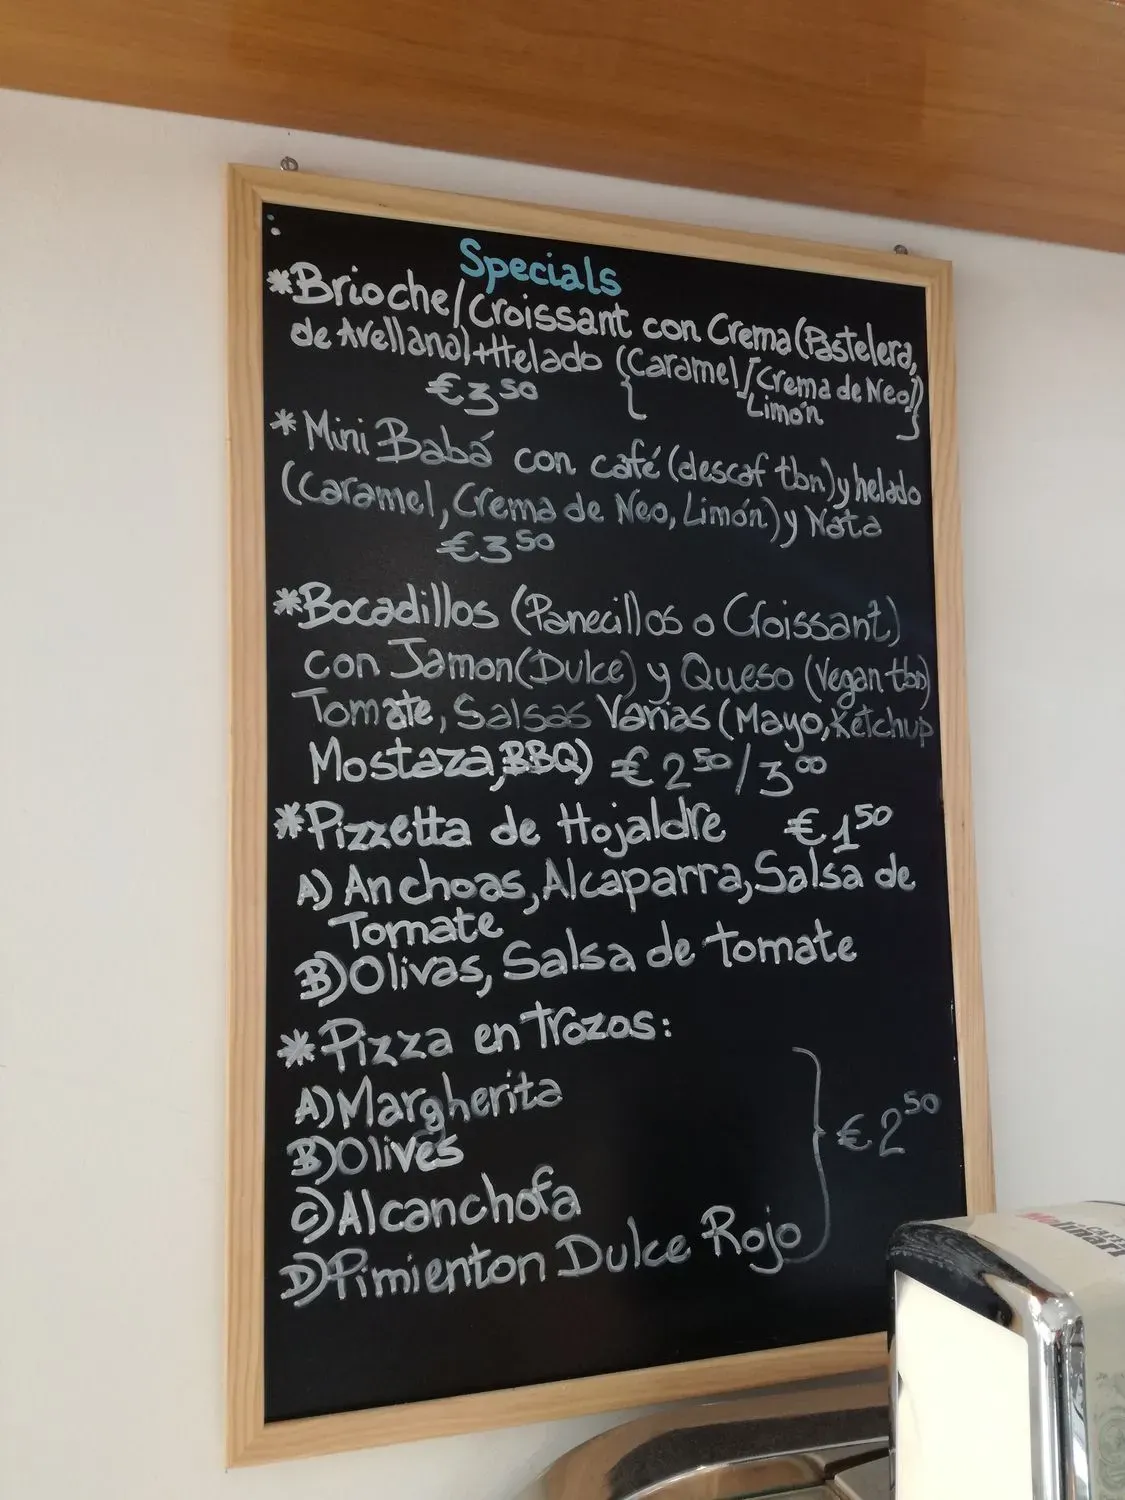 Specials
*Brioche/Croissant con Crema (Pastelera,
de Avellana)+Helado (Caramel/Crema de Neo/)
Limón
€3.50
*Mini Babá con café (descaf tbn) y helado
(Caramel, Crema de Neo, Limón) y Nata
€350
*Bocadillos (Panecillos o Croissant)
con Jamon (Dulce) y Queso (Vegan tbn)
Tomate, Salsas Varias (Mayo, Ketchup
Mostaza, BBQ) €2 50/3 00
*Pizzetta de Hojaldre €1 50
A) Anchoas, Alcaparra, Salsa de
Tomate
B) Olivas, Salsa de tomate
*Pizza en trozos:
A) Margherita
B) Olives
C) Alcanchofa
D) Pimienton Dulce Rojo
€2 50